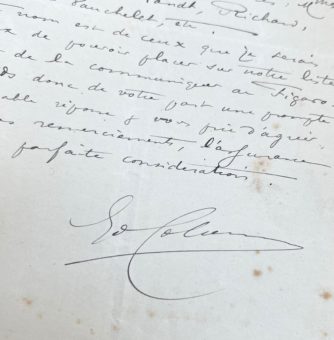 Richard,
etc.
nom est de ceux que je serais
de pouvoir placer sur notre liste
de la communiquer au Figaro.
donc de votre part une prompte
able réponse & vous prie d'agréer,
remerciements, l'assurance
parfaite considération.